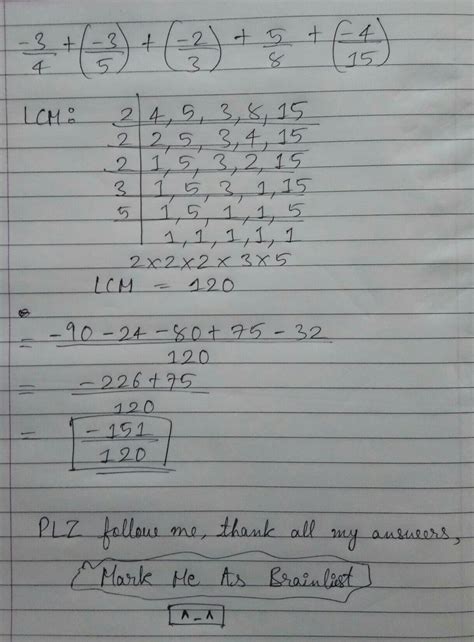 -3/4 + (-3/5) + (-2/3) + 5/8 + (-4/15)
LCM: 2 | 4, 5, 3, 8, 15
2 | 2, 5, 3, 4, 15
2 | 1, 5, 3, 2, 15
3 | 1, 5, 3, 1, 15
5 | 1, 5, 1, 1, 5
1, 1, 1, 1, 1
2×2×2×3×5
LCM = 120
= -90 - 24 - 80 + 75 - 32 / 120
= -226 + 75 / 120
= -151 / 120
PLZ follow me, thank all my answers,
Mark Me As Brainlist
^_^